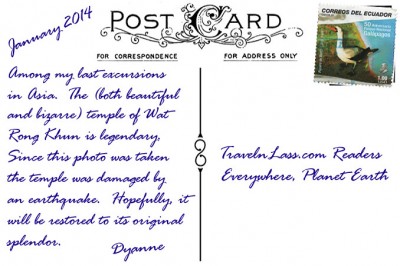 January 2014
POST CARD
FOR CORRESPONDENCE
FOR ADDRESS ONLY
CORREOS DEL ECUADOR
Galápagos
1.00
Among my last excursions
in Asia. The (both beautiful
and bizarre) temple of Wat
Rong Khun is legendary.
Since this photo was taken
the temple was damaged by
an earthquake. Hopefully, it
will be restored to its original
splendor.
Dyanne
TravelnLass.com Readers
Everywhere, Planet Earth